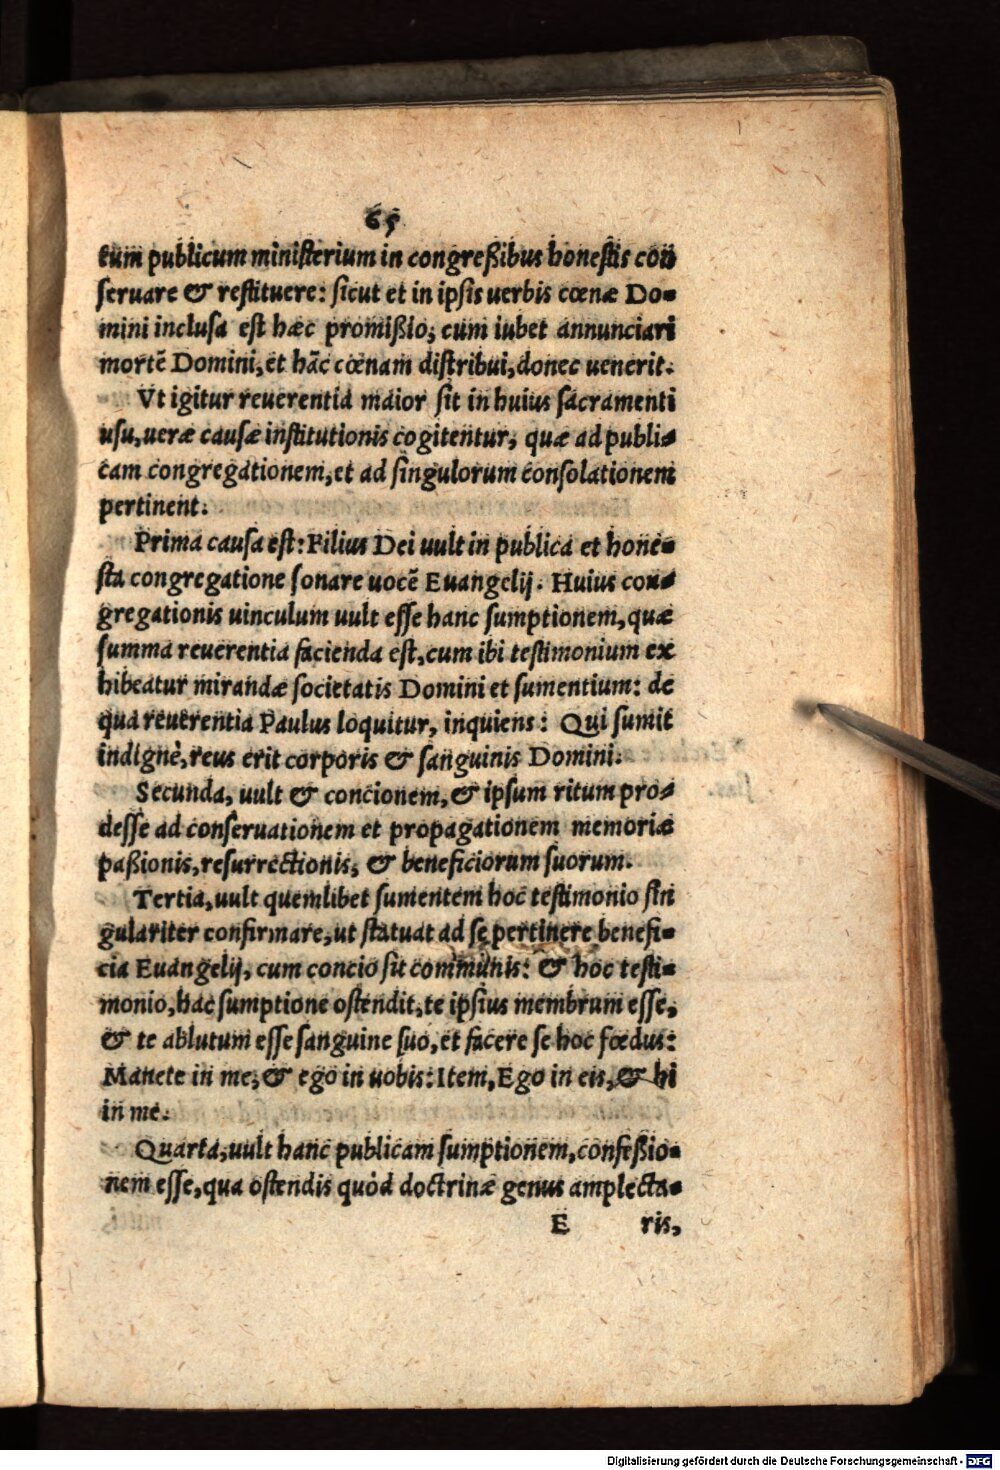 65
tum publicum ministerium in congreßibus honestis con
seruare & restituere: sicut et in ipsis uerbis cœnæ Do-
mini inclusa est hæc promißio, cum iubet annunciari
mortē Domini, et hāc cœnam distribui, donec uenerit.
Vt igitur reuerentia maior sit in huius sacramenti
usu, ueræ causæ institutionis cogitentur, quæ ad publi-
cam congregationem, et ad singulorum consolationem
pertinent.
Prima causa est: Filius Dei uult in publica et hone-
sta congregatione sonare uocē Euangelij. Huius con-
gregationis uinculum uult esse hanc sumptionem, quæ
summa reuerentia facienda est, cum ibi testimonium ex
hibeatur mirandæ societatis Domini et sumentium: de
qua reuerentia Paulus loquitur, inquiens: Qui sumit
indignè, reus erit corporis & sanguinis Domini.
Secunda, uult & concionem, & ipsum ritum pro-
desse ad conseruationem et propagationem memoriæ
paßionis, resurrectionis, & beneficiorum suorum.
Tertia, uult quemlibet sumentem hoc testimonio sin
gulariter confirmare, ut statuat ad se pertinere benefi-
cia Euangelij, cum concio sit communis: & hoc testi-
monio, hac sumptione ostendit, te ipsius membrum esse,
& te ablutum esse sanguine suo, et facere se hoc fœdus:
Manete in me, & ego in uobis: Item, Ego in eis, & hi
in me.
Quarta, uult hanc publicam sumptionem, confeßio-
nem esse, qua ostendis quòd doctrinæ genus amplecta-
E ris,
Digitalisierung gefördert durch die Deutsche Forschungsgemeinschaft - DFG